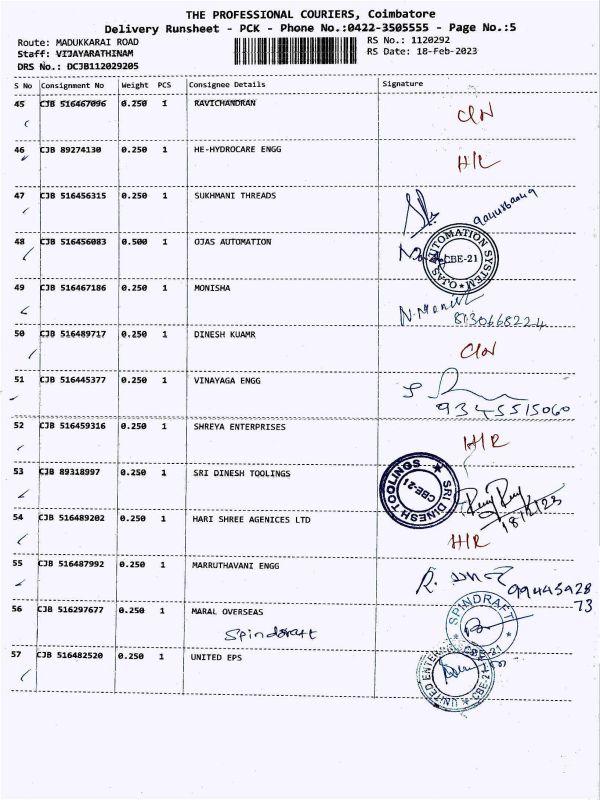 THE PROFESSIONAL COURIERS, Coimbatore
Delivery Runsheet - PCK - Phone No.:0422-3505555 - Page No.:5
Route: MADUKKARAI ROAD
Staff: VIJAYARATHINAM
DRS No.: DCJB112029205
RS No.: 1120292
RS Date: 18-Feb-2023
S No Consignment No Weight PCS Consignee Details Signature
45 CJB 516467096 0.250 1 RAVICHANDRAN
46 CJB 89274130 0.250 1 HE-HYDROCARE ENGG H/R
47 CJB 516456315 0.250 1 SUKHMANI THREADS
48 CJB 516456083 0.500 1 OJAS AUTOMATION
OJAS AUTOMATION SYSTEM
CBE-21
49 CJB 516467186 0.250 1 MONISHA
8130668224
50 CJB 516489717 0.250 1 DINESH KUAMR
51 CJB 516445377 0.250 1 VINAYAGA ENGG
9345515060
52 CJB 516459316 0.250 1 SHREYA ENTERPRISES H/R
53 CJB 89318997 0.250 1 SRI DINESH TOOLINGS
SRI DINESH TOOLINGS
CBE-21
18/2/23
54 CJB 516489202 0.250 1 HARI SHREE AGENICES LTD H/R
55 CJB 516487992 0.250 1 MARRUTHAVANI ENGG
56 CJB 516297677 0.250 1 MARAL OVERSEAS
Spindraft
SPINDRAFT
57 CJB 516482520 0.250 1 UNITED EPS